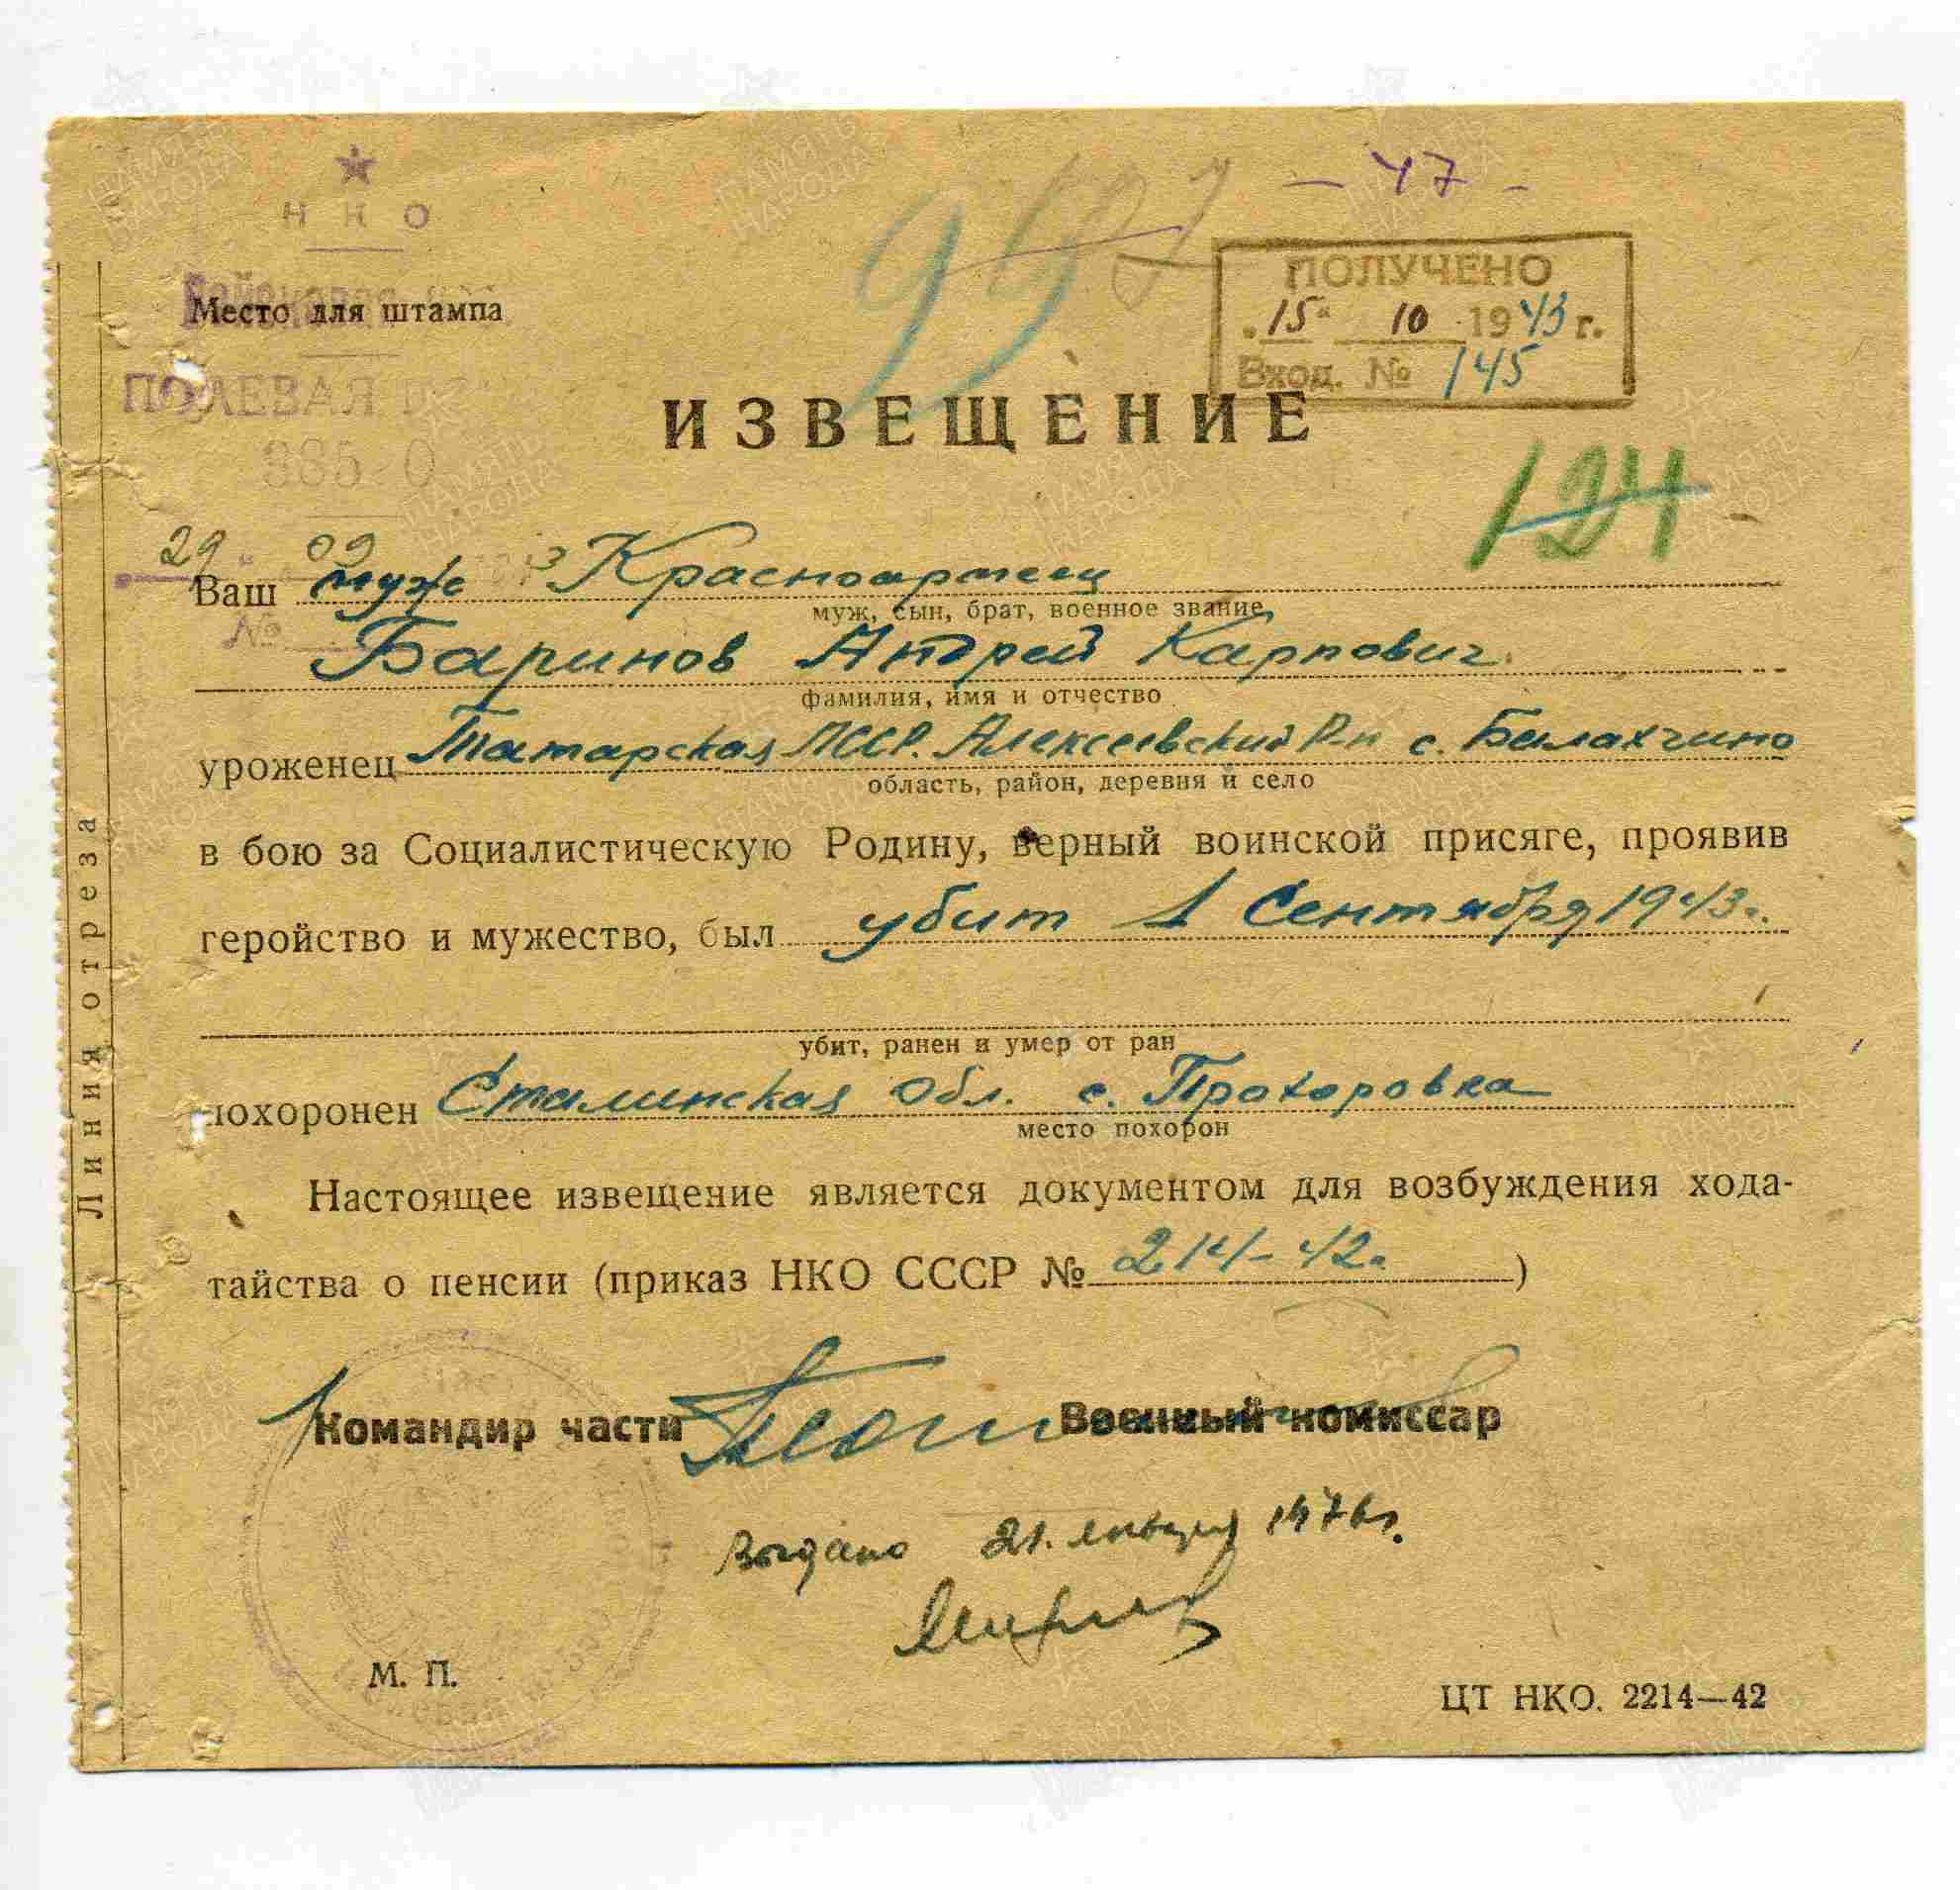 - 47 -
Н К О
997
ПОЛУЧЕНО
Место для штампа
"15" 10 1943 г.
Вход. № 145
ПОЛЕВАЯ
ИЗВЕЩЕНИЕ
124
29 " 09
Ваш муж Красноармеец
муж, сын, брат, военное звание
№
Баринов Андрей Карпович
фамилия, имя и отчество
уроженец Татарская АССР. Алексеевский Р-н с. Билахчино
область, район, деревня и село
в бою за Социалистическую Родину, верный воинской присяге, проявив
геройство и мужество, был убит 1 Сентября 1943г.
убит, ранен и умер от ран
похоронен Сталинская Обл. с. Прохоровка
место похорон
Настоящее извещение является документом для возбуждения хода-
тайства о пенсии (приказ НКО СССР № 214-42г. )
Командир части Военный комиссар
Выдано 21. января 1976г.
М. П.
ЦТ НКО. 2214—42
Линия отреза
ПАМЯТЬ НАРОДА